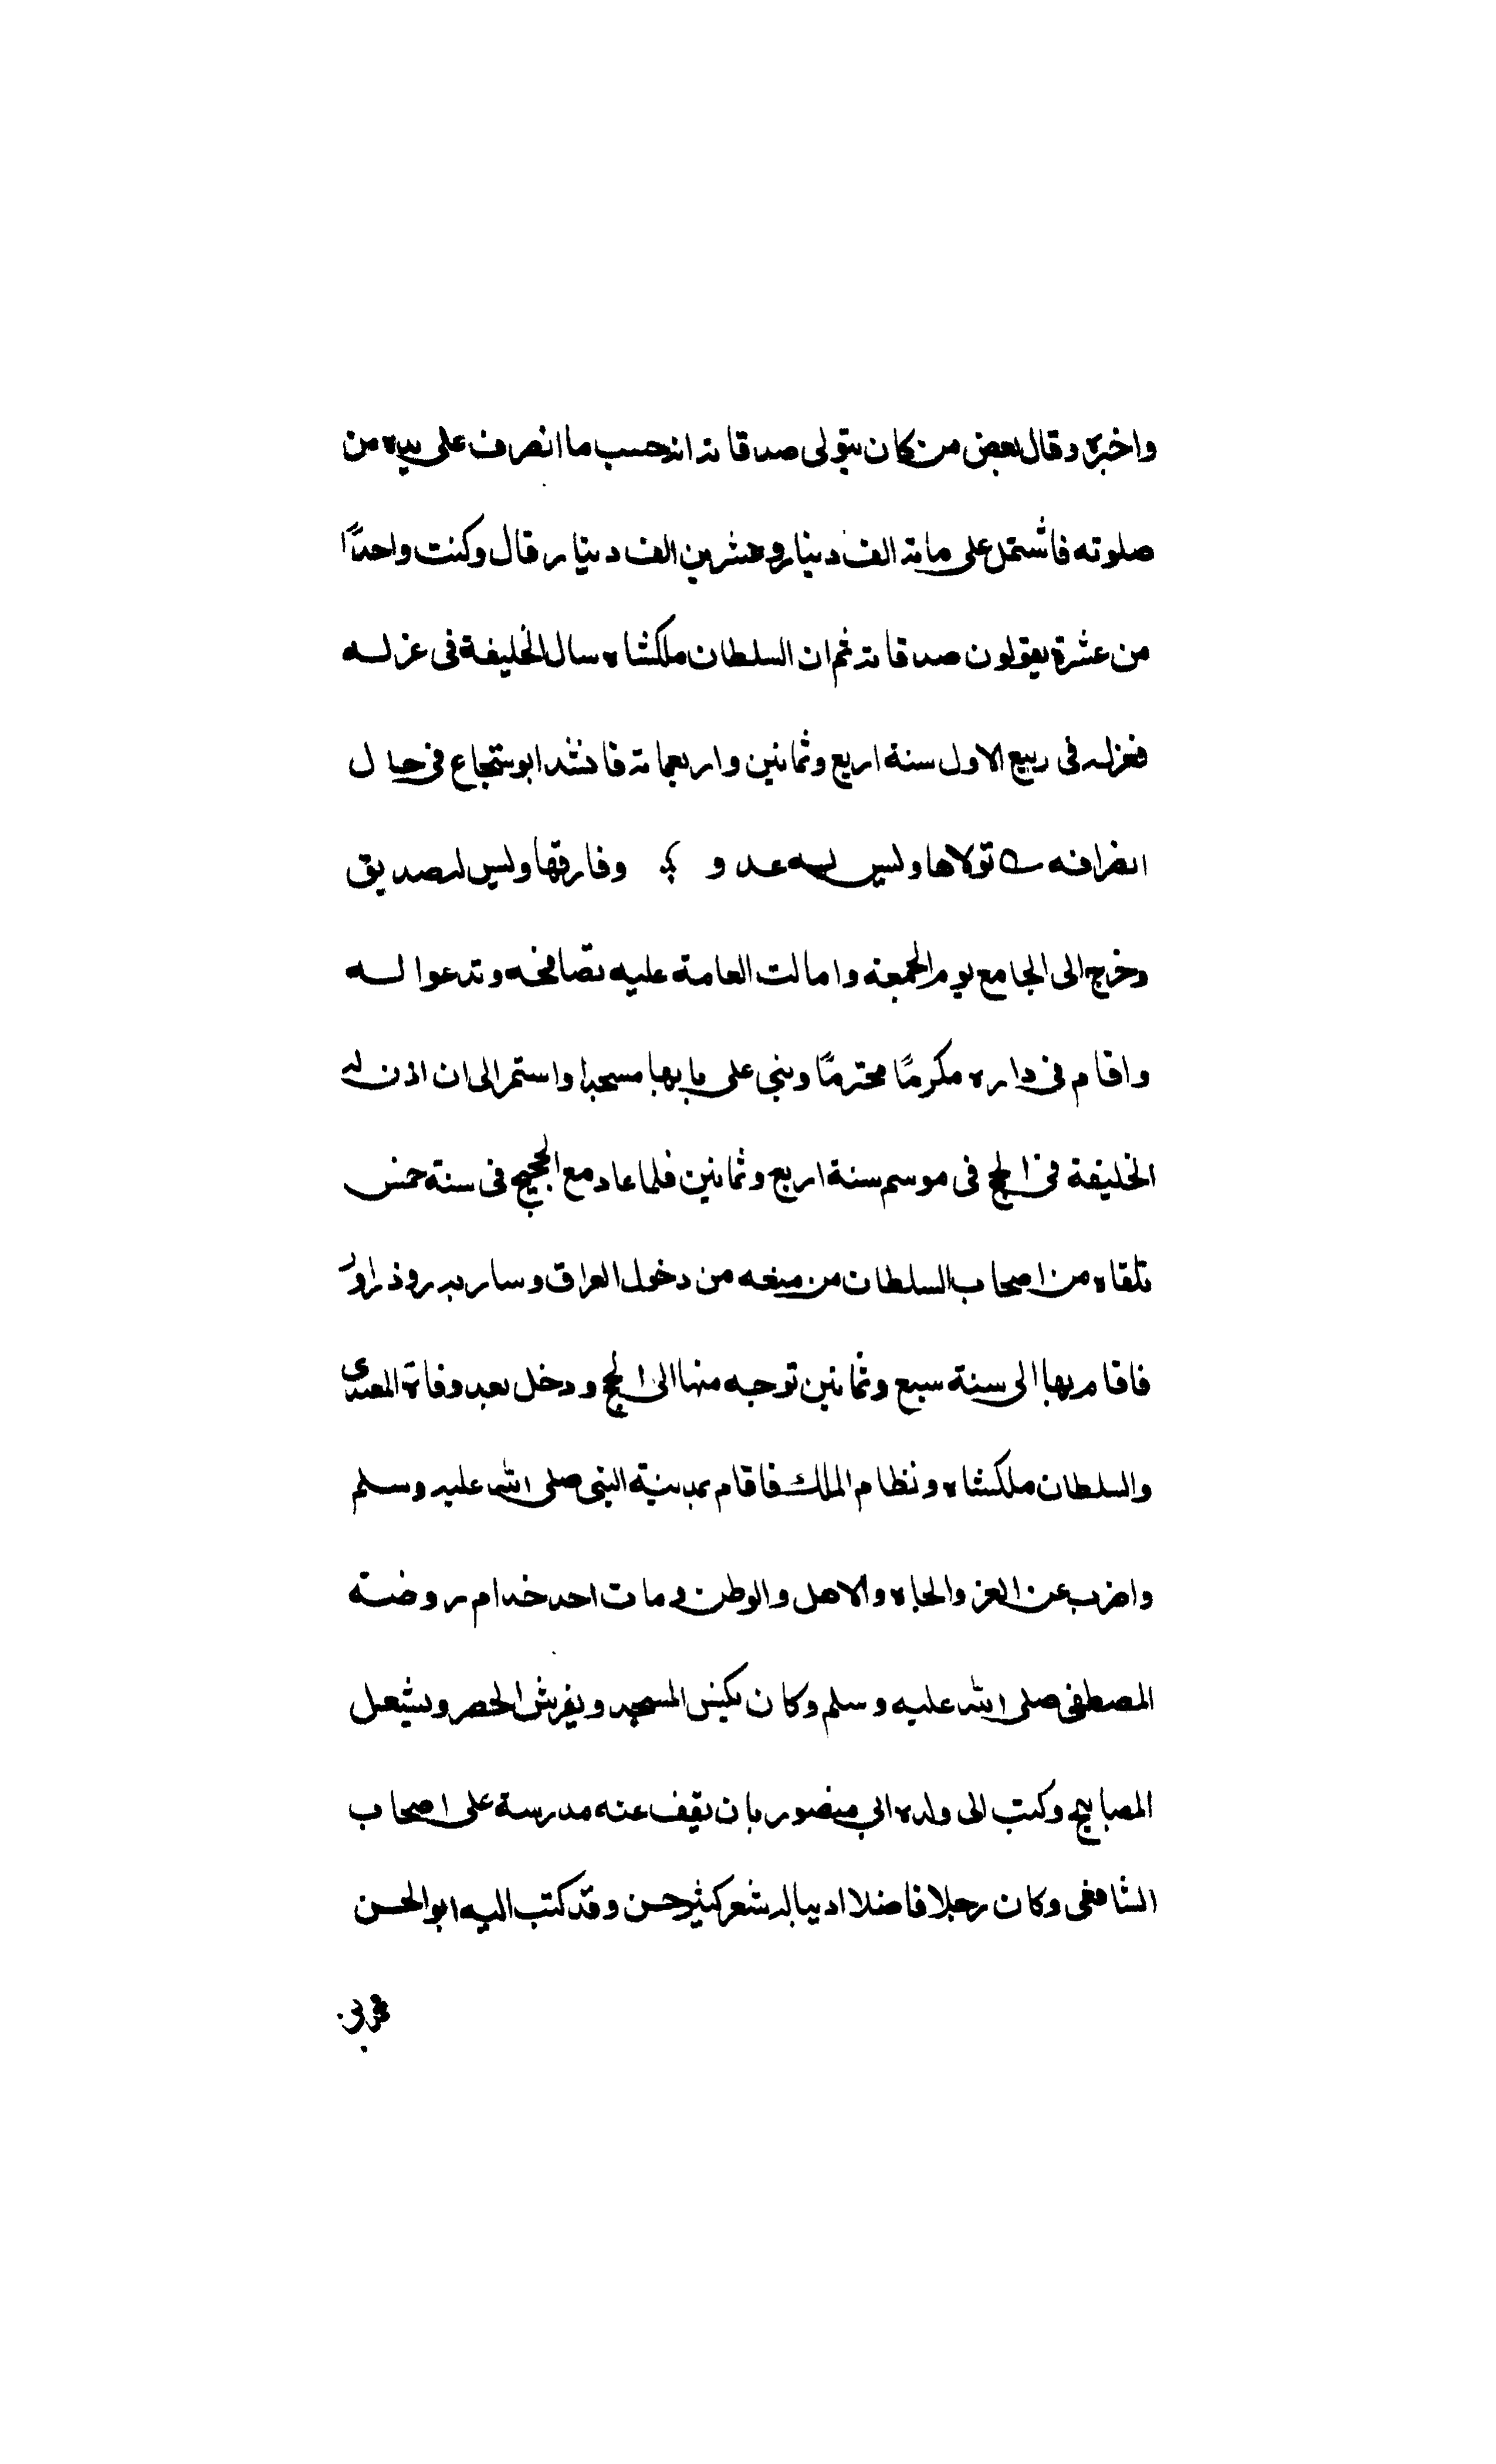 واخبره وقال بعض من كان يتولى صدقاته انه حسب ما انصرف على يده من
صلوته فاشتمل على مائة الف دينار وعشرين الف دينار قال وكنت واحدًا
من عشرة يتولون صدقاته ثم ان السلطان ملكشاه سال الخليفة فى عزله
فعزله فى ربيع الاول سنة اربع وثمانين واربعمائة فانشد ابو شجاع فى حال
انصرافه تولاها وليس له عدو وفارقها وليس له صديق
وخرج الى الجامع يوم الجمعة وامالت العامة عليه تصافحه وتدعوا له
واقام فى داره مكرمًا محترمًا وبنى على بابها مسجدا واستمر الى ان اذن له
الخليفة فى الحج فى موسم سنة اربع وثمانين فلما عاد مع الحجيج فى سنة خمس
تلقاه من اصحاب السلطان من منعه من دخول العراق وسار به روذراور
فاقام بها الى سنة سبع وثمانين توجه منها الى الحج ودخل بعد وفاة المقتدى
والسلطان ملكشاه ونظام الملك فاقام بمدينة النبى صلى الله عليه وسلم
واضرب عن العز والجاه والاهل والوطن ومات احد خدام روضة
المصطفى صلى الله عليه وسلم وكان يكنس المسجد ويفرش الحصر ويشعل
المصابيح وكتب الى ولده ابى منصور بان يقف عنه مدرسة على اصحاب
الشافعى وكان رجلا فاضلا اديبا له شعر كثير حسن وقد كتب اليه ابو الحسن